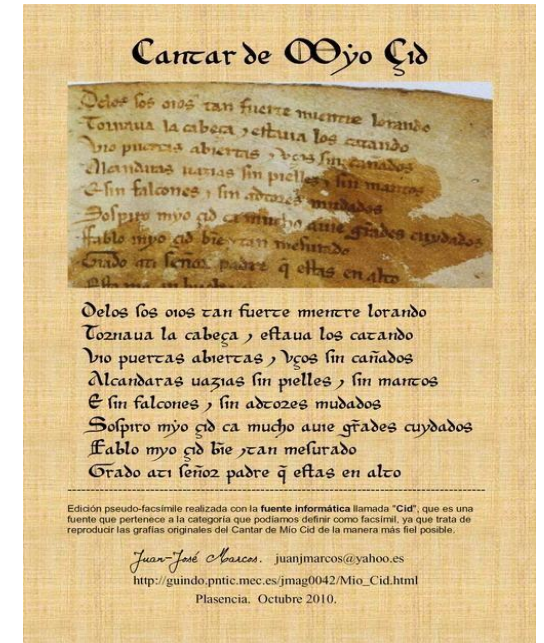 Cantar de Mẏo Çid
Delos sos oios tan fuerte mientre lorando
Tornaua la cabeça ⁊ estaua los catando
Vio puertas abiertas ⁊ vços sin cañados
Alcandaras uazias sin pielles ⁊ sin mantos
E sin falcones ⁊ sin adtores mudados
Sospiro mẏo çid ca mucho auie grãdes cuydados
Fablo myo çid biẽ ⁊ tan mesurado
Grado ati señor padre
Delos sos oios tan fuerte mientre lorando
Tornaua la cabeça ⁊ estaua los catando
Vio puertas abiertas ⁊ vços sin cañados
Alcandaras uazias sin pielles ⁊ sin mantos
E sin falcones ⁊ sin adtores mudados
Sospiro mẏo çid ca mucho auie grãdes cuydados
Fablo myo çid biẽ ⁊ tan mesurado
Grado ati señor padre q̃ estas en alto
Edición pseudo-facsímile realizada con la fuente informática llamada "Cid", que es una
fuente que pertenece a la categoría que podíamos definir como facsímil, ya que trata de
reproducir las grafías originales del Cantar de Mío Cid de la manera más fiel posible.
Juan-José Marcos. juanjmarcos@yahoo.es
http://guindo.pntic.mec.es/jmag0042/Mio_Cid.html
Plasencia. Octubre 2010.